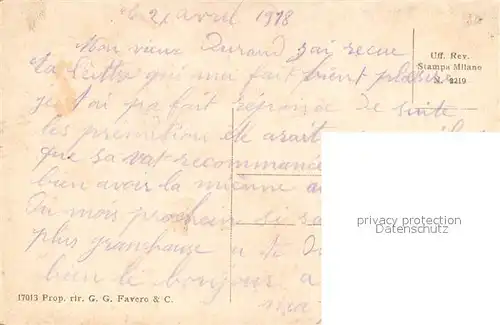 le 21 avril 1918
Mon vieux Durand j'ai recue
ta lettre qui ma fait bient plaisir
je t'ai pa fait réponse de suite
les premition été arait
que sa vat recommancé
bien avoir la mienne au
du mois prochain si sa
plus granchause a te
bien le bonjour a
Uff. Rev.
Stampa Milano
N. 2219
privacy protection
Datenschutz
17013 Prop. rir. G. G. Favero & C.